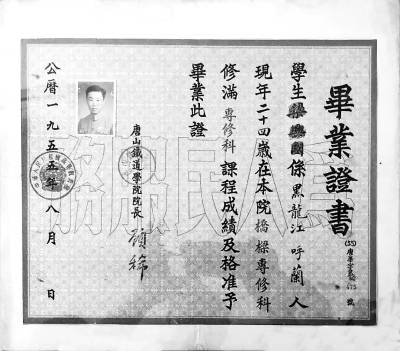 畢業證書
學生 係黑龍江呼蘭人
現年二十四歲在本院橋樑專修科
修滿專修科課程成績及格准予
畢業此證
唐山鐵道學院院長 顧稀
公曆一九五五年八月 日
為人民服務